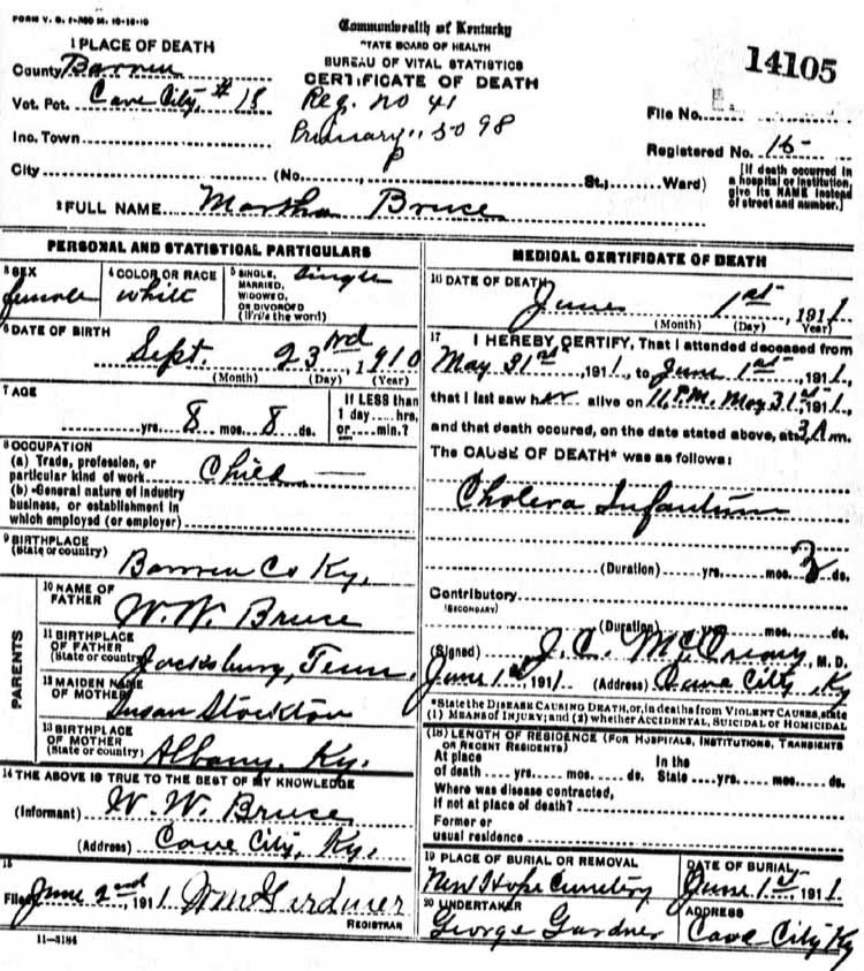 FORM V. S. 1-500 M. 10-10-10
Commonwealth of Kentucky
STATE BOARD OF HEALTH
BUREAU OF VITAL STATISTICS
CERTIFICATE OF DEATH
14105
1 PLACE OF DEATH
County Barren
Vot. Pct. Cave City, # 18
Reg. no 41
Primary " 5098
File No.
Inc. Town
Registered No. 16-
City (No. , St.; Ward)
[If death occurred in a hospital or institution, give its NAME instead of street and number.]
2 FULL NAME Martha Bruce
PERSONAL AND STATISTICAL PARTICULARS
3 SEX female
4 COLOR OR RACE white
5 SINGLE, MARRIED, WIDOWED, OR DIVORCED (Write the word) Single
6 DATE OF BIRTH
Sept. 23rd, 1910
(Month) (Day) (Year)
7 AGE
yrs. 8 mos. 8 ds.
If LESS than 1 day hrs. or min.?
8 OCCUPATION
(a) Trade, profession, or particular kind of work Child
(b) General nature of industry business, or establishment in which employed (or employer)
9 BIRTHPLACE
(State or country)
Barren Co Ky.
PARENTS
10 NAME OF FATHER
W. W. Bruce
11 BIRTHPLACE OF FATHER
(State or country) Jacksburg, Tenn.
12 MAIDEN NAME OF MOTHER
Susan Stockton
13 BIRTHPLACE OF MOTHER
(State or country) Albany, Ky.
14 THE ABOVE IS TRUE TO THE BEST OF MY KNOWLEDGE
(Informant) W. W. Bruce
(Address) Cave City, Ky.
15
Filed June 2nd, 1911 Wm Gardner
REGISTRAR
11-3184
MEDICAL CERTIFICATE OF DEATH
16 DATE OF DEATH
June 1st, 1911
(Month) (Day) Year)
17 I HEREBY CERTIFY, That I attended deceased from
May 31st, 1911, to June 1st, 1911,
that I last saw her alive on 11, P.M. May 31st, 1911,
and that death occured, on the date stated above, at 3 A.m.
The CAUSE OF DEATH* was as follows:
Cholera Infantum
(Duration) yrs. mos. ds.
Contributory
(SECONDARY)
(Duration) yrs. mos. ds.
(Signed) J. C. McCreary, M. D.
June 1st, 1911 (Address) Cave City, Ky
*State the DISEASE CAUSING DEATH, or, in deaths from VIOLENT CAUSES, state
(1) MEANS of INJURY; and (2) whether ACCIDENTAL, SUICIDAL or HOMICIDAL
(18) LENGTH OF RESIDENCE (FOR HOSPITALS, INSTITUTIONS, TRANSIENTS
OR RECENT RESIDENTS)
At place of death yrs. mos. ds. In the State yrs. mos. ds.
Where was disease contracted,
If not at place of death?
Former or
usual residence
19 PLACE OF BURIAL OR REMOVAL
New Hope Cemetery
DATE OF BURIAL
June 1st, 1911
20 UNDERTAKER
George Gardner
ADDRESS
Cave City Ky